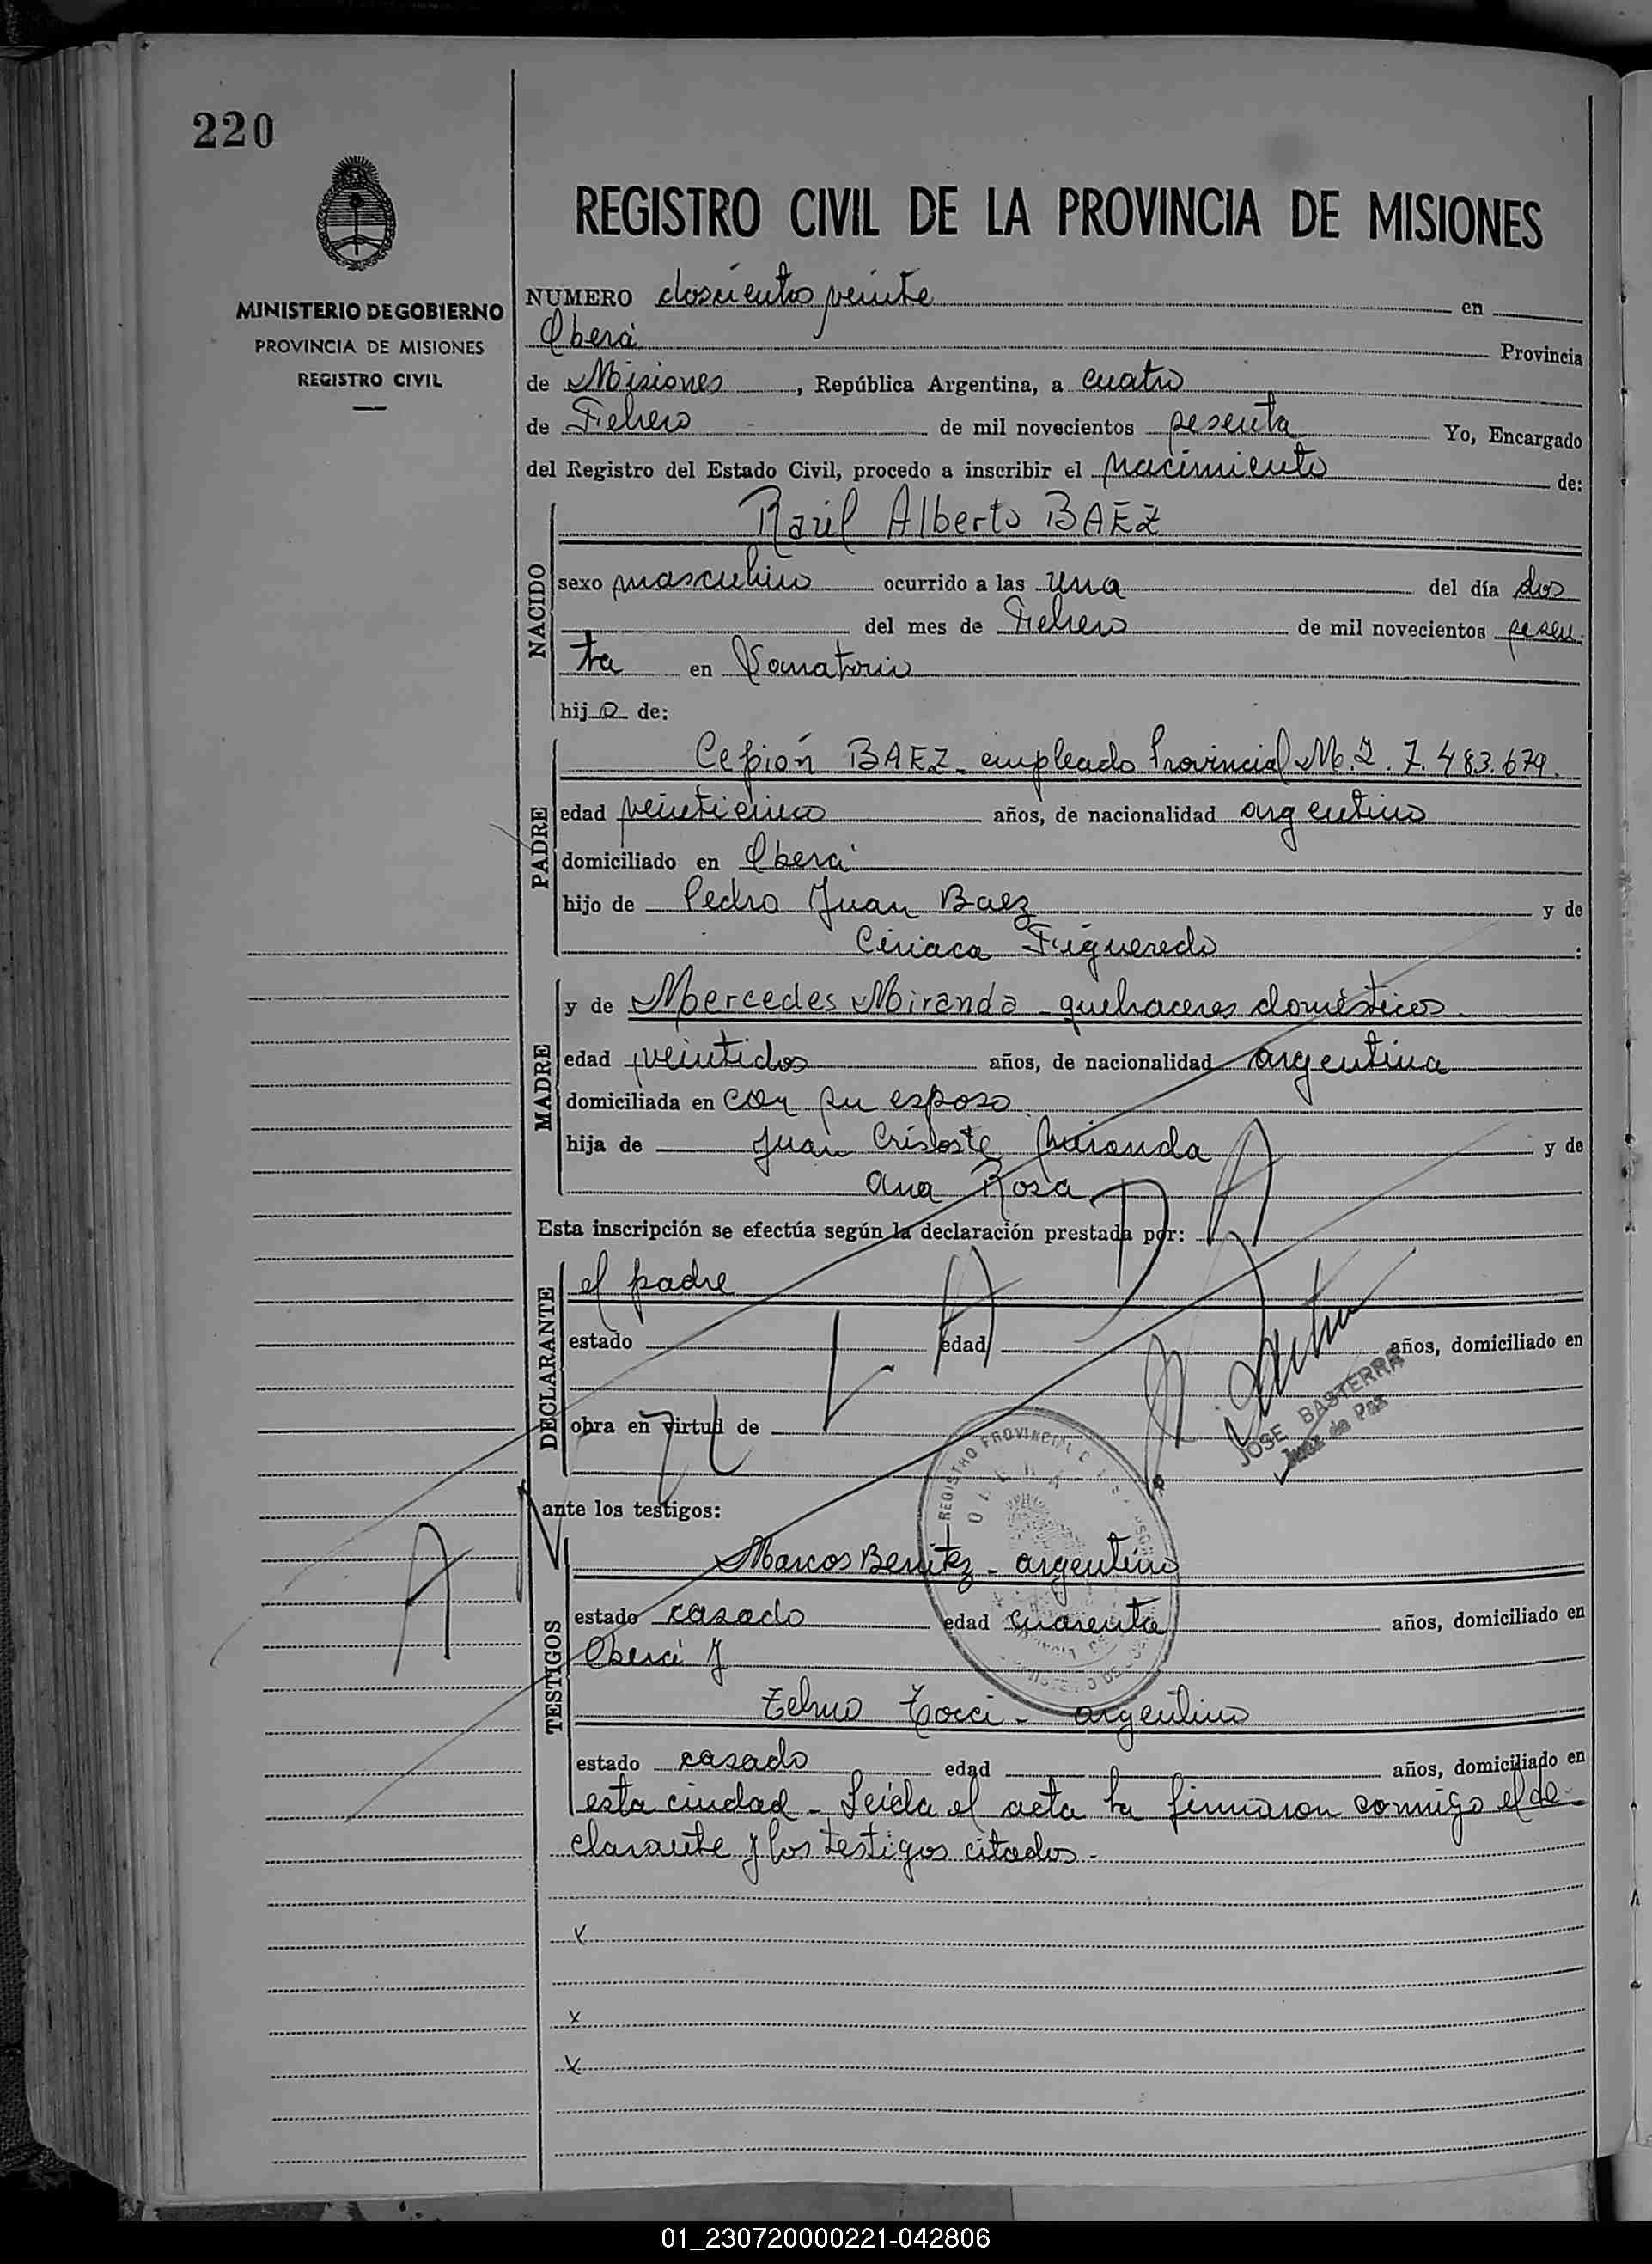 220
REGISTRO CIVIL DE LA PROVINCIA DE MISIONES
MINISTERIO DE GOBIERNO
PROVINCIA DE MISIONES
REGISTRO CIVIL
NUMERO doscientos veinte en
Oberá Provincia
de Misiones, República Argentina, a cuatro
de Febrero de mil novecientos sesenta Yo, Encargado
del Registro del Estado Civil, procedo a inscribir el nacimiento de:
NACIDO
Raúl Alberto BAEZ
sexo masculino ocurrido a las una del día dos
del mes de Febrero de mil novecientos sesen
ta en Sanatorio
hijo de:
PADRE
BAEZ - empleado Provincial M.I. 7.483.679.
edad veinticinco años, de nacionalidad argentino
domiciliado en Oberá
hijo de Pedro Juan Baez y de
Ciriaca Figueredo :
MADRE
y de Mercedes Miranda - quehaceres domésticos.
edad veintidos años, de nacionalidad argentina
domiciliada en con su esposo.
hija de Juan Miranda y de
Ana Rosa
Esta inscripción se efectúa según la declaración prestada por:
DECLARANTE
el padre
estado edad años, domiciliado en
obra en virtud de
JOSE BASTERRA
Juez de Paz
ante los testigos:
TESTIGOS
Marcos Benitez - argentino
estado casado edad cuarenta años, domiciliado en
Oberá y
Telmo Tocci - argentino
estado casado edad años, domiciliado en
esta ciudad - Leida el acta la firmaron conmigo el de-
clarante y los testigos citados -
x
x
x
ANULADA
REGISTRO PROVINCIAL
OBERA
01_230720000221-042806